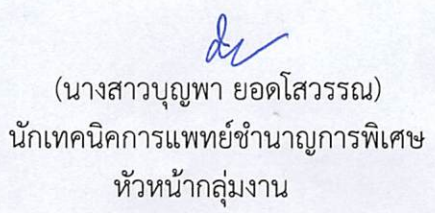 (นางสาวบุญพา ยอดโสวรรณ)
นักเทคนิคการแพทย์ชำนาญการพิเศษ
หัวหน้ากลุ่มงาน